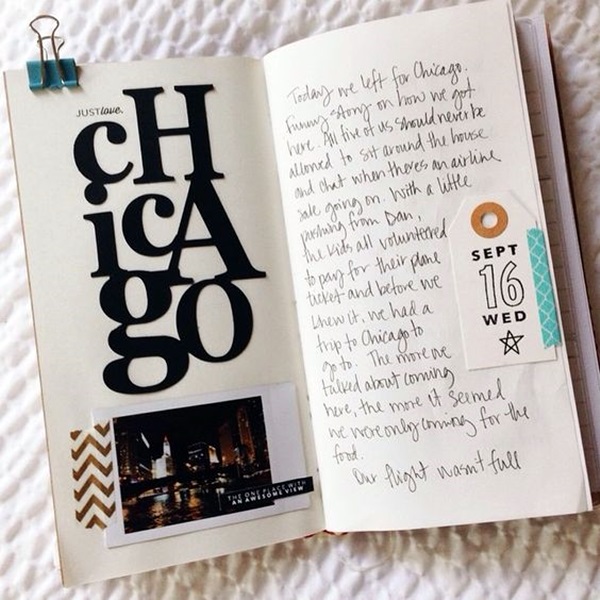 JUSTlove.
cH
icA
go
THE ONE PLACE WITH
AN AWESOME VIEW
Today we left for Chicago.
Funny story on how we got
here. All five of us should never be
allowed to sit around the house
and chat when there's an airline
sale going on. With a little
pushing from Dan,
the kids all volunteered
to pay for their plane
ticket and before we
knew it, we had a
trip to Chicago to
go to. The more we
talked about coming
here, the more it seemed
we were only coming for the
food.
Our flight wasn't full
SEPT
16
WED